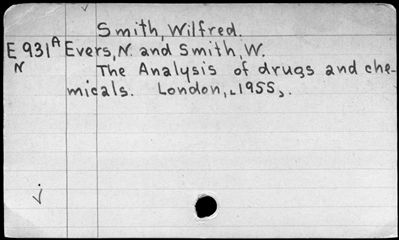 Smith, Wilfred.
E 931 A Evers, N. and Smith, W.
N The Analysis of drugs and che-
micals. London, [1955].